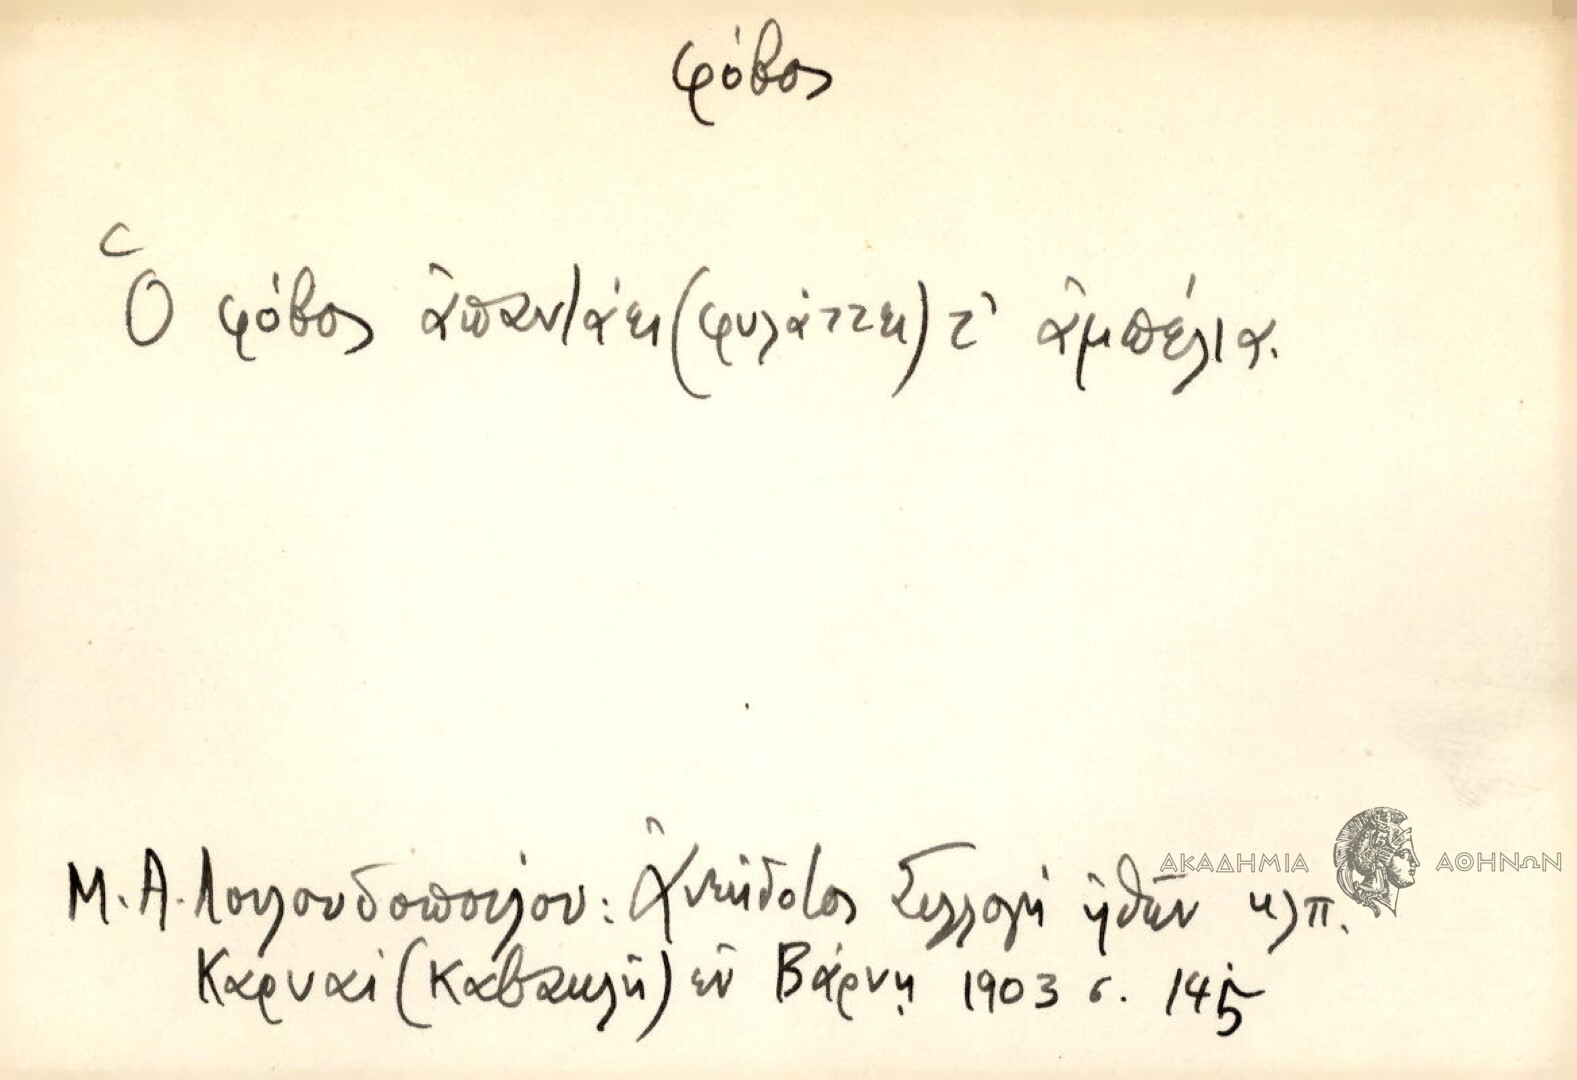 φόβος
Ὁ φόβος ἀπαντάει (φυλάττει) τ' ἀμπέλια.
Μ. Α. Λουλουδοπούλου: Ἀνέκδοτος Συλλογή ἠθῶν κλπ.
Καρυαί (Καβακλῆ) ἐν Βάρνῃ 1903 σ. 145
ΑΚΑΔΗΜΙΑ ΑΘΗΝΩΝ